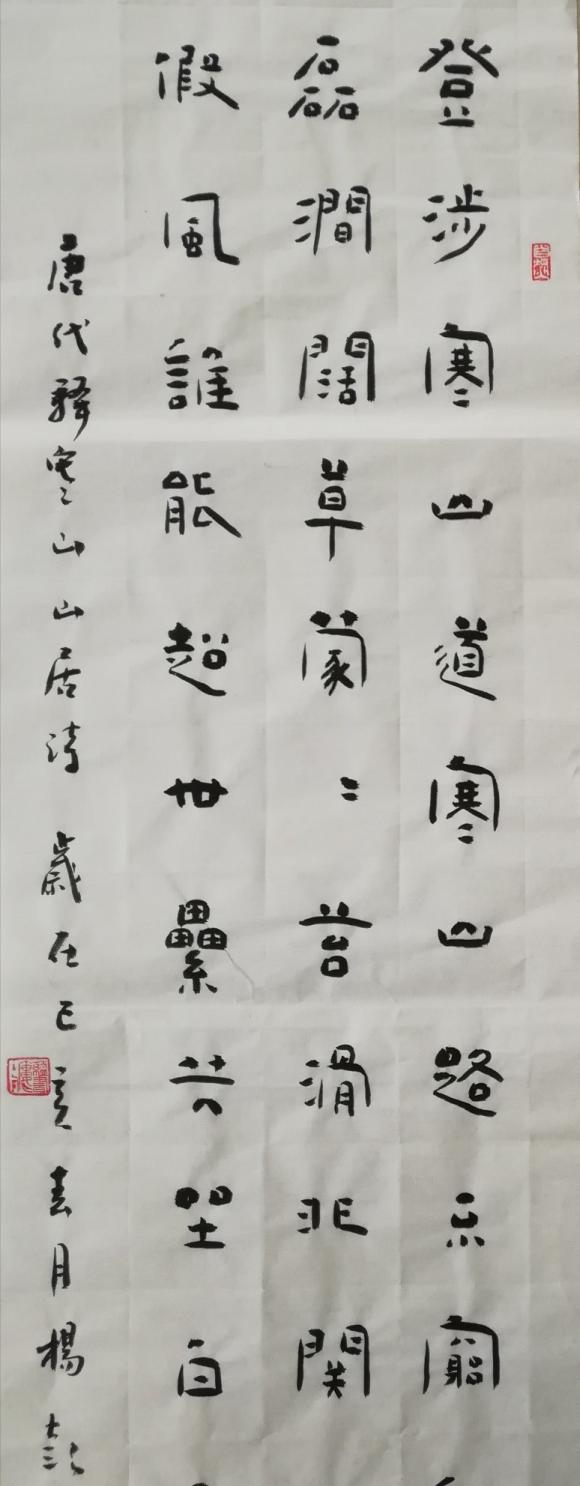 登涉寒山道寒山路不窮
磊澗闊草蒙〻苔滑非關
假風誰能超世纍共坐白
唐代釋寒山山居詩 歲在己亥春月楊彭